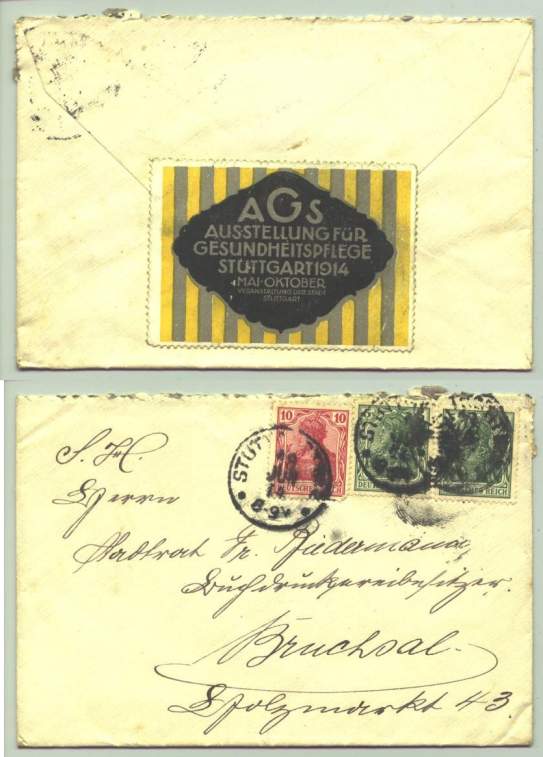 AGS
AUSSTELLUNG FÜR
GESUNDHEITSPFLEGE
STUTTGART 1914
MAI-OKTOBER
VERANSTALTUNG DER STADT
STUTTGART
10 10
DEUTSCHES REICH
DEUTSCHES REICH
REICH
STUTT
14
8-9V
S. H.
Herrn
Stadtrat Fr. Biedermann,
Buchdruckereibesitzer.
Bruchsal.
Holzmarkt 43.